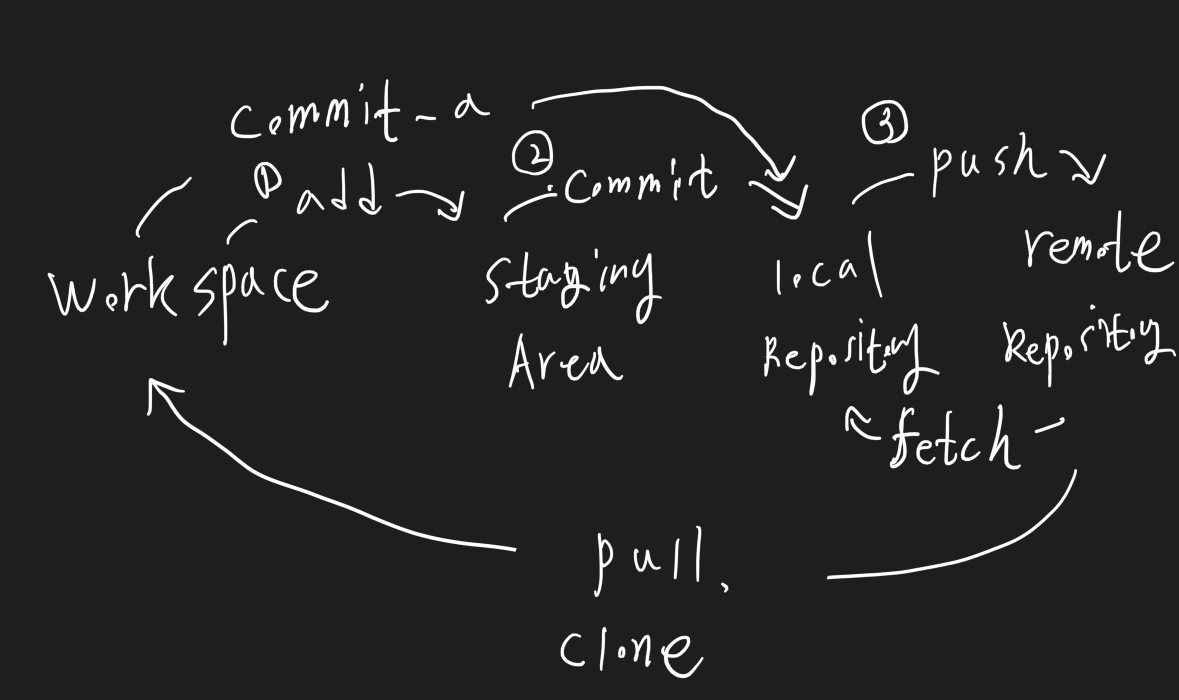 commit -a
① add
② commit
③ push
workspace
staging
Area
local
Repository
remote
Repository
fetch
pull、
clone